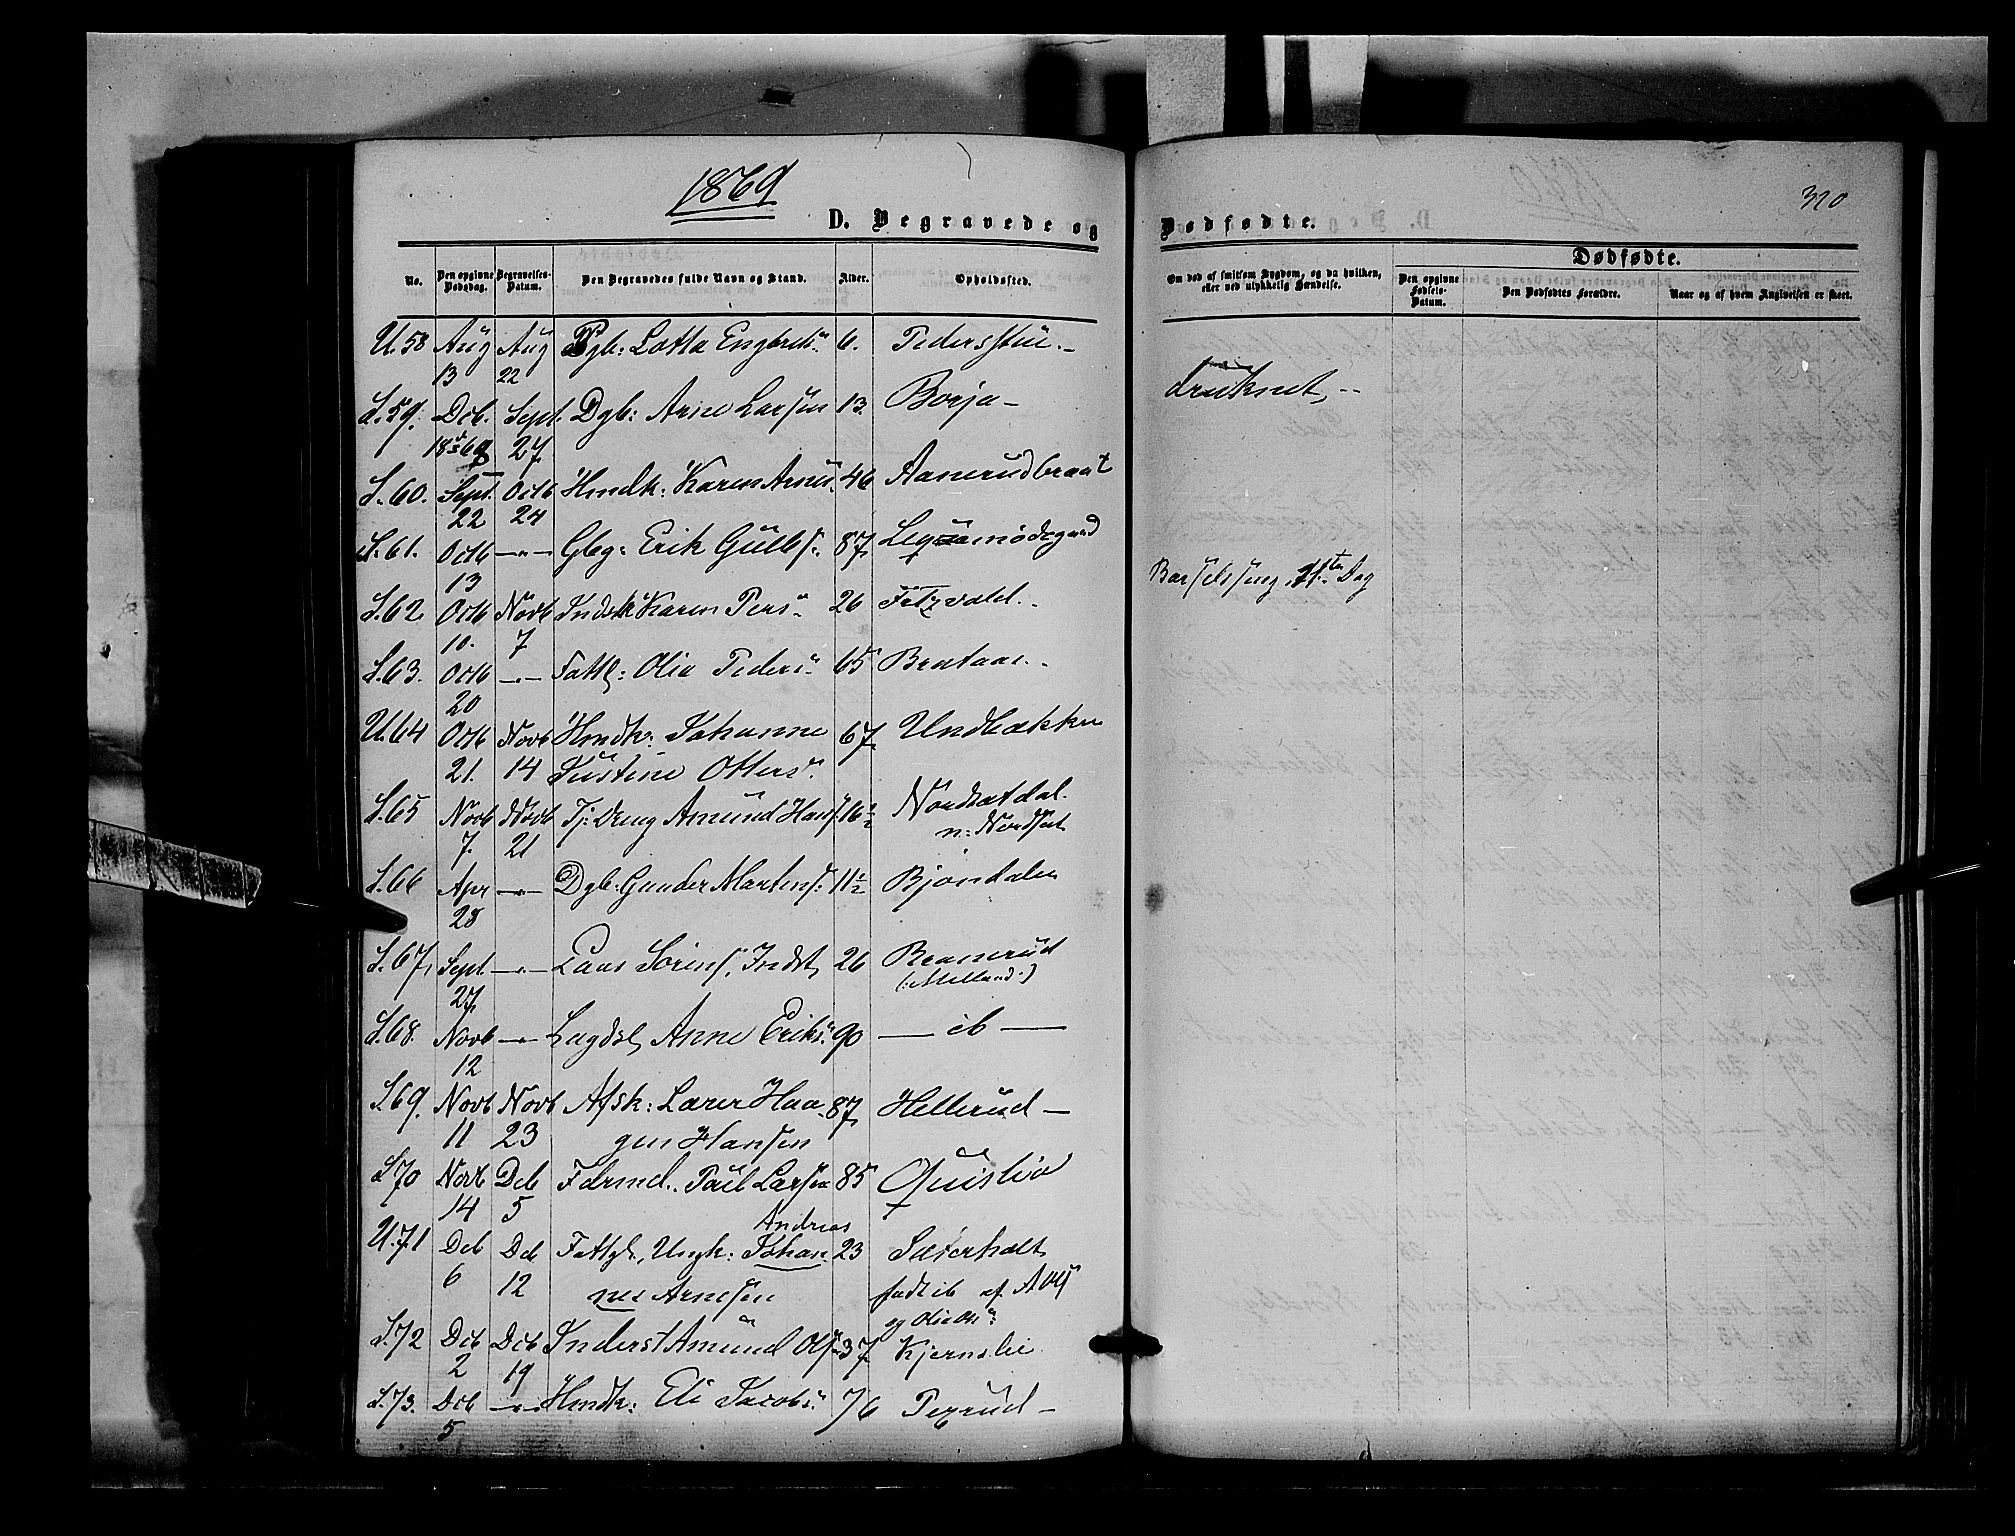 1869
320
D. Begravede og Dødfødte.
No.
Den opgivne Dødsdag.
Begravelses-Datum.
Den Begravedes fulde Navn og Stand.
Alder.
Opholdssted.
Om død af smitsom Sygdom, og da hvilken, eller ved ulykkelig Hændelse.
Dødfødte.
Den opgivne Fødsels-Datum.
Den Dødfødtes Forældre.
Naar og af hvem Angivelsen er skeet.
U. 58 Aug 13 Aug 22 Pgb: Lotta Engbrets 6.
S. 59. Dcb. 18 Sept. 27 Dgb: Arne Larsen 13. Borja - druknet, --
S. 60. Sept. 22 Octb 24 Hmdk: Karen Arnes 46 Aanerudbraat
S. 61. Octb 13 -"- Gbg: Erik Gulbs: 87
S. 62. Octb 10. Novb 7 Indsk Karen Pers 26 Barselseng, ten Dag
S. 63. Octb 20 -"- Fattl: Olia Peders 65 Brataas.
U. 64 Octb 21. Novb 14 Hmdk: Johanne 67
Justine Otters
S. 65 Novb 7. Novb 21 Tj: Dreng Amund Hans 16½ Nordsætdal
n: Nordset
S. 66 Apr 28 -"- Dgb: Gunder Martins: 11½ Bjøndalen
S. 67, Sept 27 -"- Lars Sorens, Indst, 26 Branerud
S. 68. Novb 12 -"- Lægdsl, Anne Eriks 90 - ib -
S. 69. Novb 11 Novb 23 Afsk: Lærer Haa- 87 Hellerud -
gen Hansen
S. 70 Novb 14 Dcb 5 Fdrmd. Poul Larsen 85 Quislio
Andreas
U. 71 Dcb 6 Dcb 12 Fattgl, Ungk: Johan- 23 Sæterholt
nes Arnesen født ib af
S. 72 Dcb 2 Dcb 19 Inderst Amund Ols 37 Kjernslie
S. 73. Dcb 5 -"- Hmdk: Eli Jacobs 76 -